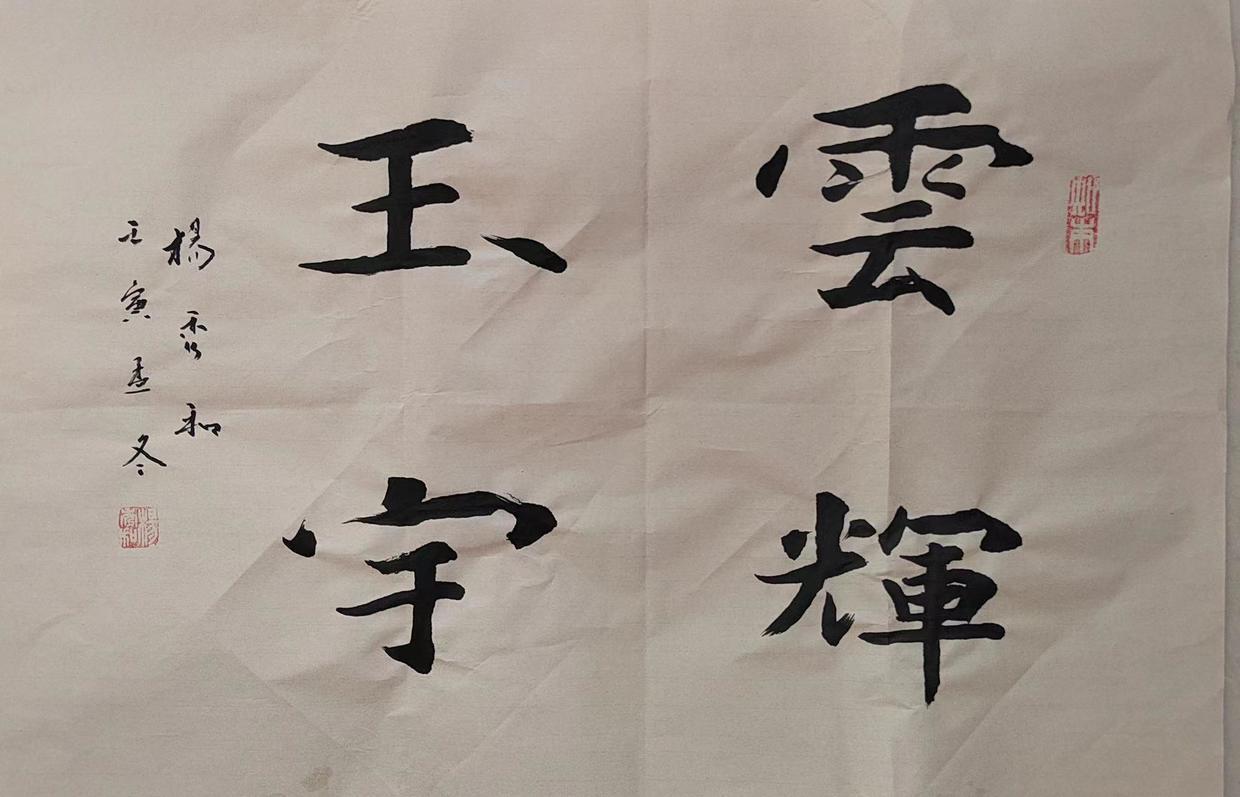 雲輝
玉宇
楊雲和
壬寅孟冬